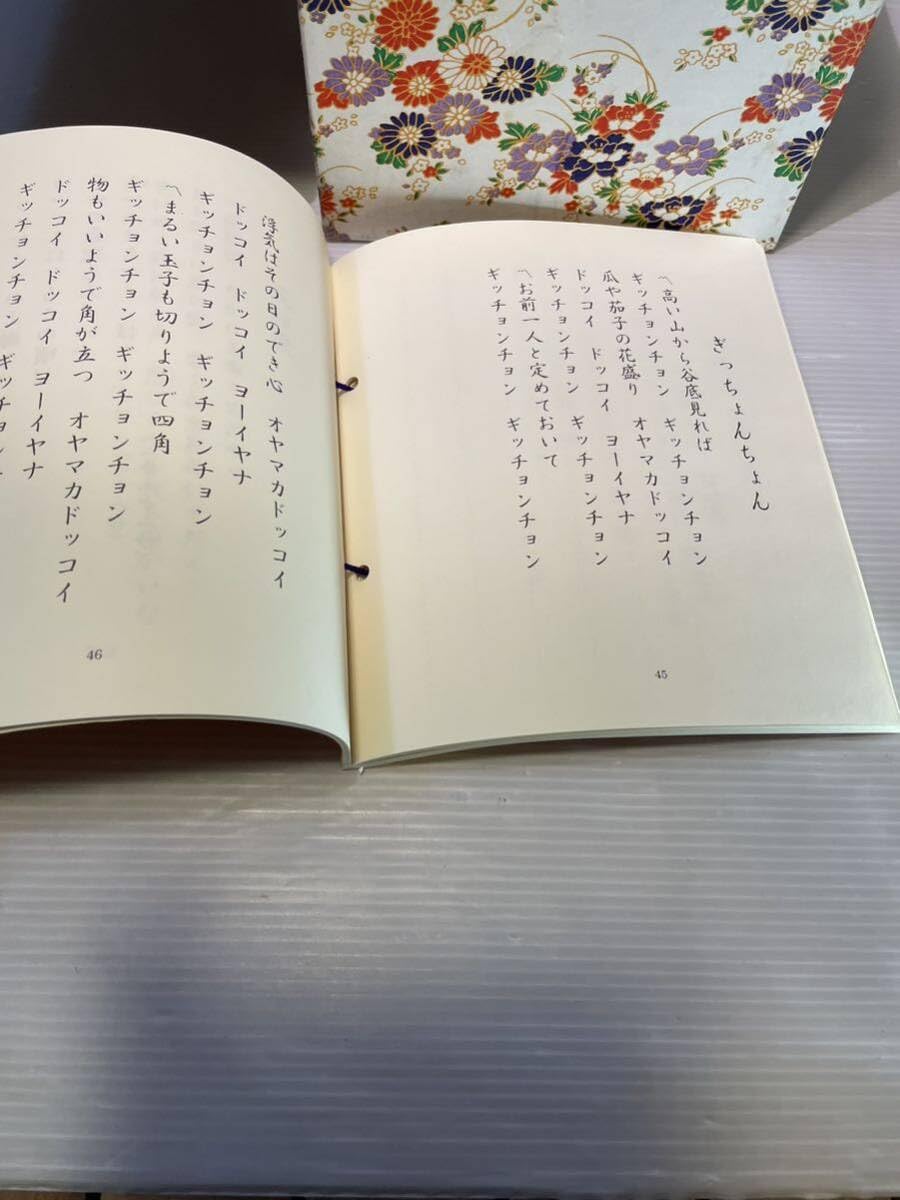 ぎっちょんちょん
〽高い山から谷底見れば
ギッチョンチョン ギッチョンチョン
瓜や茄子の花盛り オヤマカドッコイ
ドッコイ ドッコイ ヨーイヤナ
ギッチョンチョン ギッチョンチョン
〽お前一人と定めておいて
ギッチョンチョン ギッチョンチョン
45
浮気はその日のでき心 オヤマカドッコイ
ドッコイ ドッコイ ヨーイヤナ
ギッチョンチョン ギッチョンチョン
〽まるい玉子も切りようで四角
ギッチョンチョン ギッチョンチョン
物もいいようで角が立つ オヤマカドッコイ
ドッコイ ドッコイ ヨーイヤナ
ギッチョンチョン ギッチョン
46